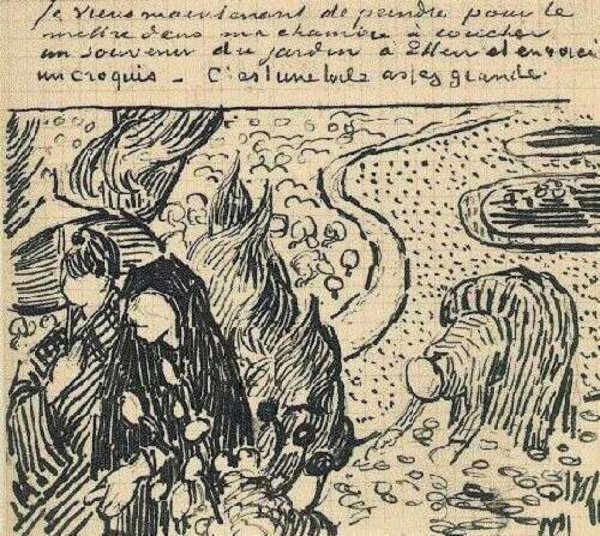 Je viens maintenant de peindre pour le
mettre dans ma chambre à coucher
un souvenir du jardin à Etten et en voici
un croquis – C'est une toile assez grande.